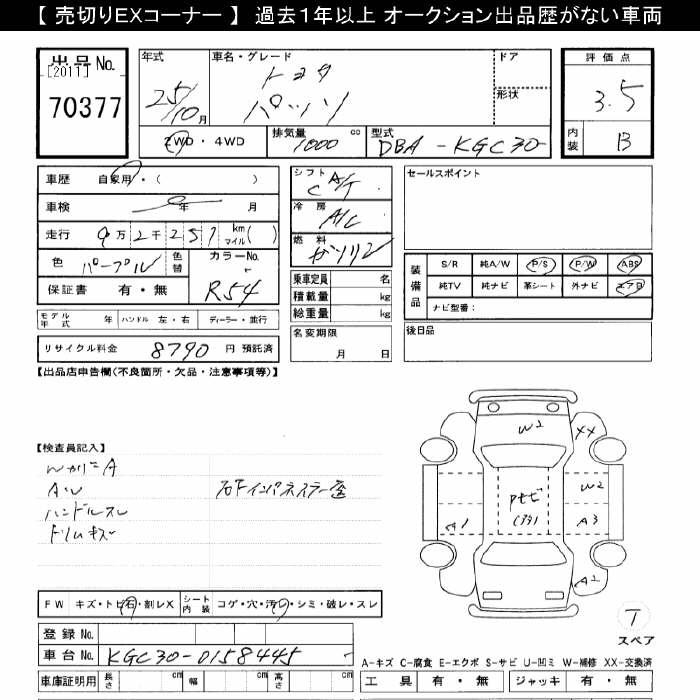 【 売切りEXコーナー 】 過去１年以上 オークション出品歴がない車両
出品No.
[2011]
70377
年式
25/10月
車名・グレード
トヨタ
パッソ
ドア
形状
評価点
3.5
内装 B
2WD・4WD
排気量 1000 cc
型式 DBA-KGC30
車歴 自家用・( )
車検 年 月
走行 9万2千257 km マイル( )
色 パープル
色替
カラーNo. R54
保証書 有・無
シフト A/T
冷房 A/C
燃料 ガソリン
乗車定員 名
積載量 kg
総重量 kg
名変期限 月 日
セールスポイント
装備品
S/R 純A/W P/S P/W ABS
純TV 純ナビ 革シート 外ナビ エアB
ナビ型番：
後日品
モデル年式 年 ハンドル 左・右 ディーラー・並行
リサイクル料金 8790 円 預託済
【出品店申告欄(不良箇所・欠品・注意事項等)】
【検査員記入】
ハンドルスレ
ドリムキズ
W2
XX
W2
A1
A3
A2
FW キズ・トビ石・割レX
シート内装 コゲ・穴・汚レ・シミ・破レ・スレ
T
スペア
登録No.
車台No. KGC30-0158445
車庫証明用 長さ cm 幅 cm 高さ cm
A-キズ C-腐食 E-エクボ S-サビ U-凹ミ W-補修 XX-交換済
工具 有・無 ジャッキ 有・無